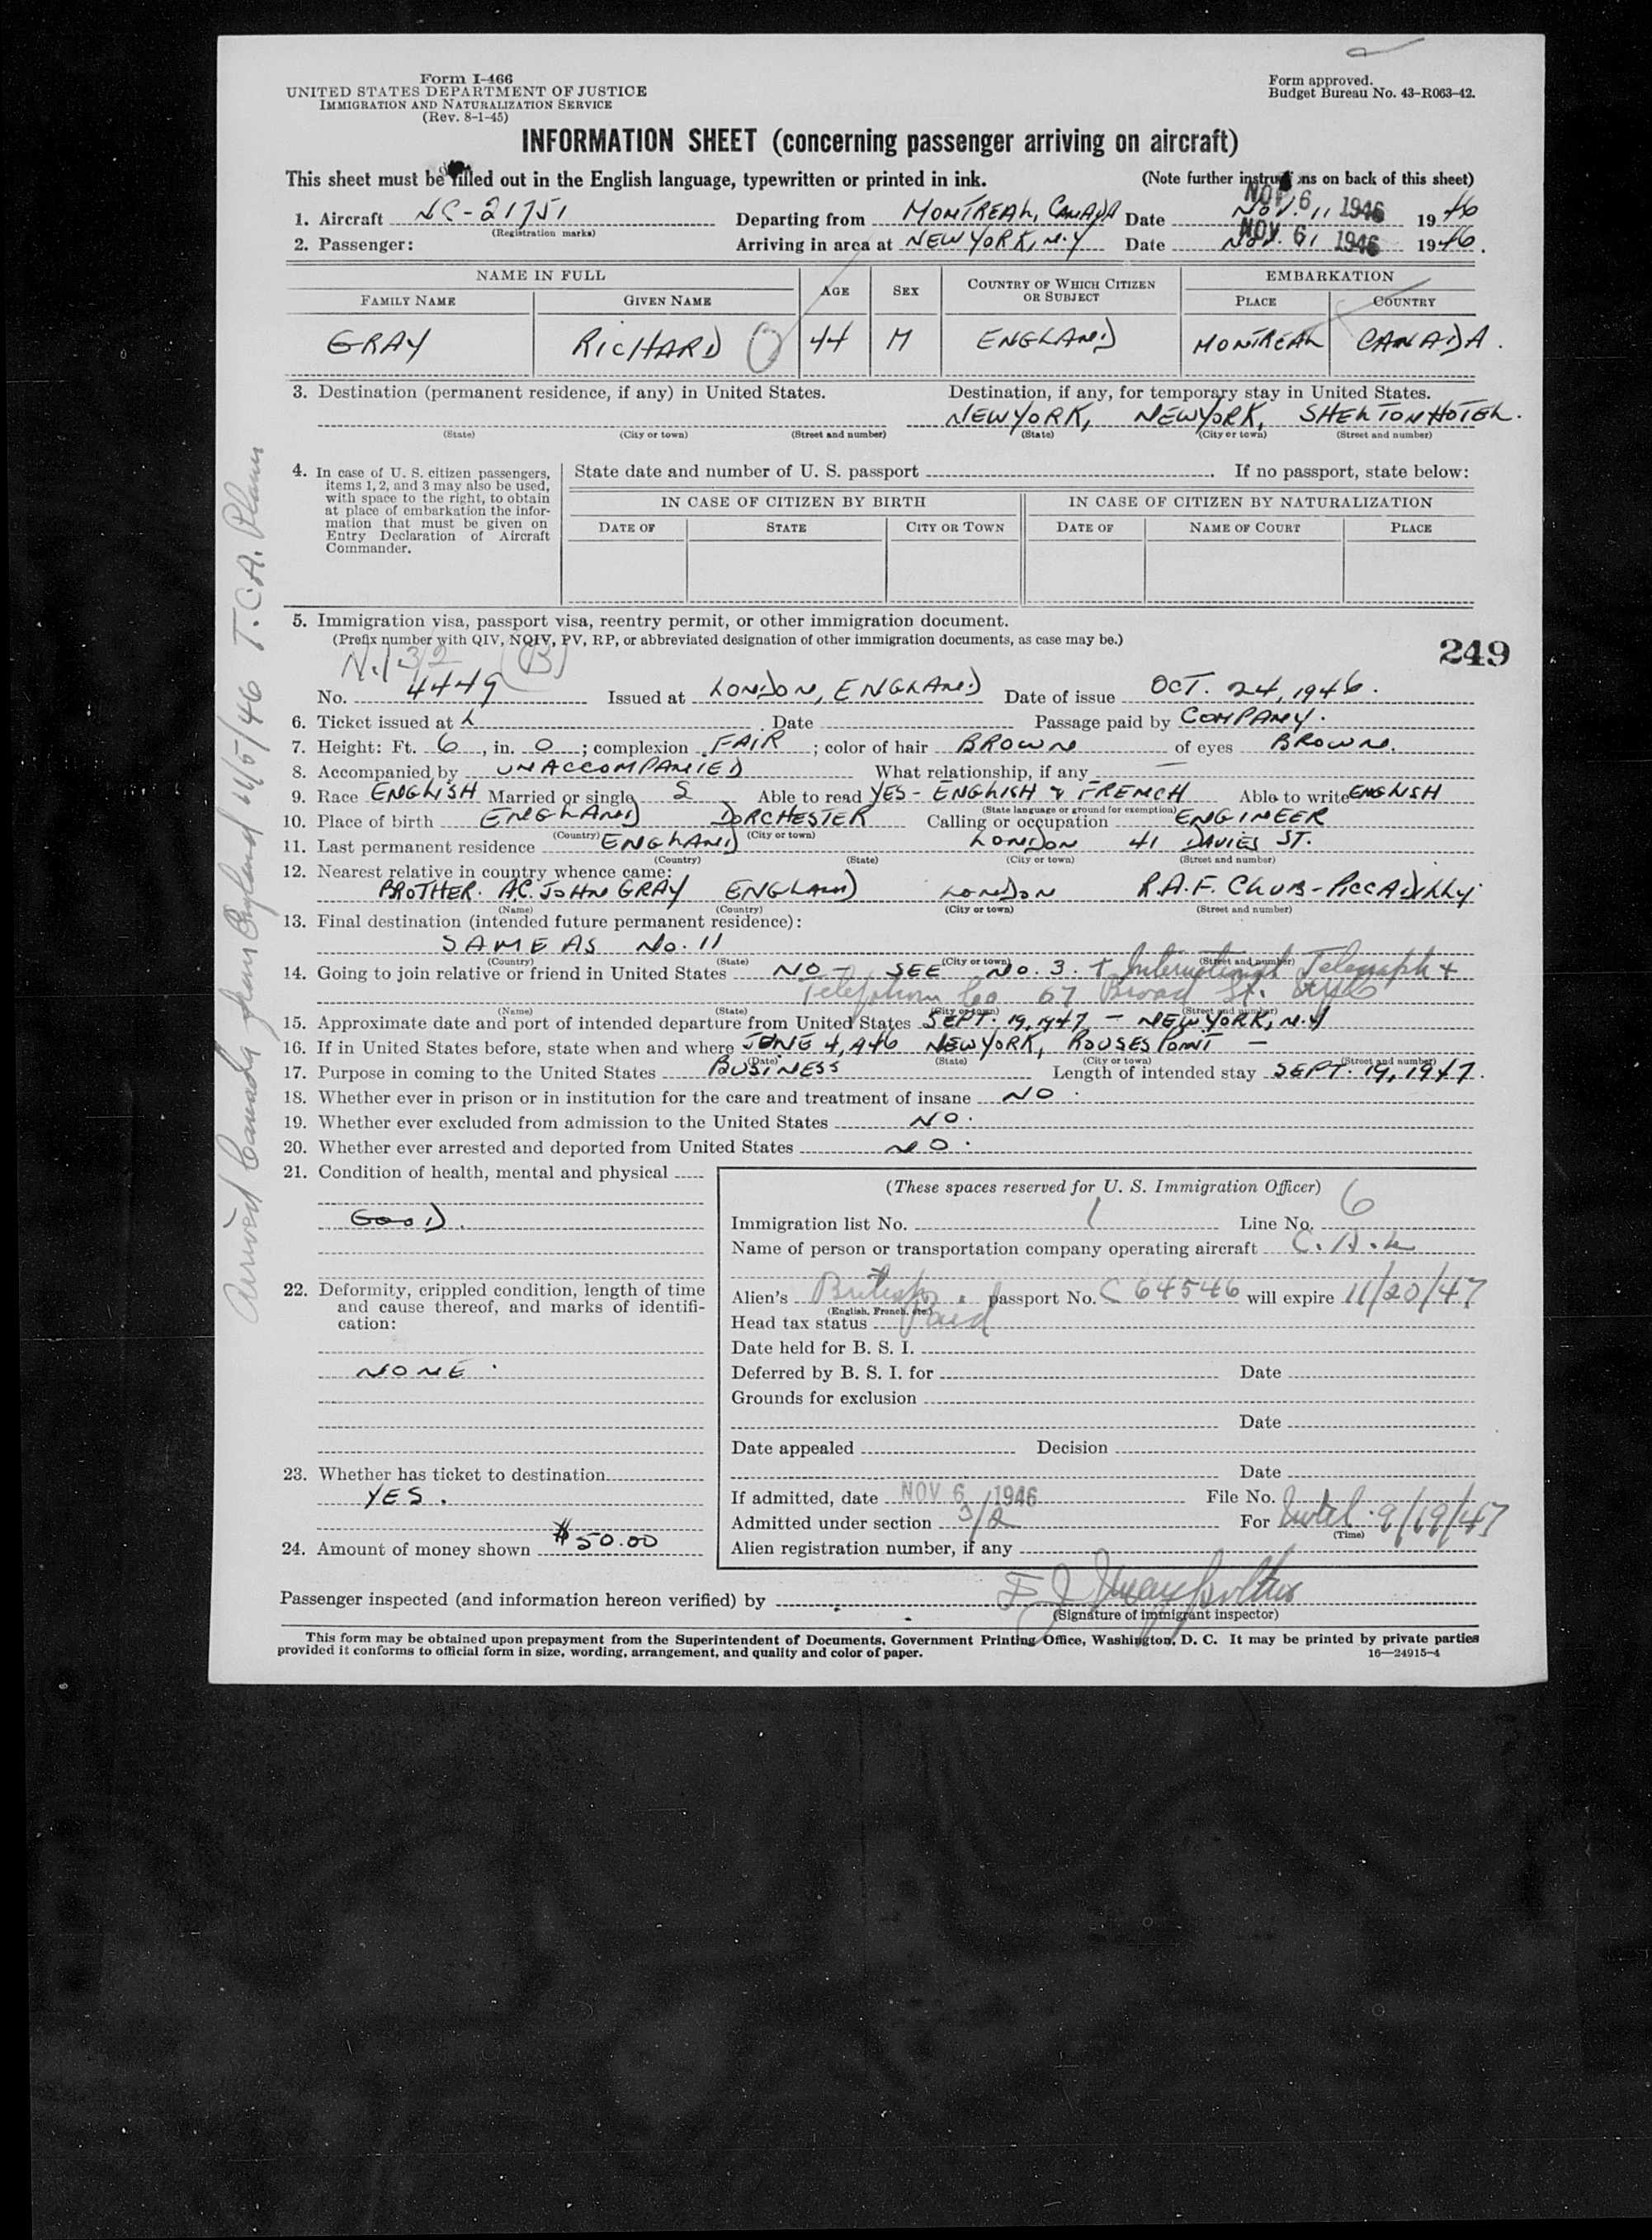 Form I-466
UNITED STATES DEPARTMENT OF JUSTICE
IMMIGRATION AND NATURALIZATION SERVICE
(Rev. 8-1-45)
Form approved.
Budget Bureau No. 43-R063-42.
INFORMATION SHEET (concerning passenger arriving on aircraft)
This sheet must be filled out in the English language, typewritten or printed in ink. (Note further instructions on back of this sheet)
1. Aircraft NC-21751 Departing from MONTREAL, CANADA Date NOV 6 1946 1946
(Registration marks)
2. Passenger: Arriving in area at NEW YORK, N.Y Date NOV. 6 1946 1946.
NAME IN FULL AGE SEX COUNTRY OF WHICH CITIZEN OR SUBJECT EMBARKATION
FAMILY NAME GIVEN NAME PLACE COUNTRY
GRAY RICHARD 44 M ENGLAND MONTREAL CANADA.
3. Destination (permanent residence, if any) in United States. Destination, if any, for temporary stay in United States.
NEW YORK, NEW YORK, SHELTON HOTEL.
(State) (City or town) (Street and number) (State) (City or town) (Street and number)
4. In case of U. S. citizen passengers, items 1, 2, and 3 may also be used, with space to the right, to obtain at place of embarkation the information that must be given on Entry Declaration of Aircraft Commander.
State date and number of U. S. passport . If no passport, state below:
IN CASE OF CITIZEN BY BIRTH IN CASE OF CITIZEN BY NATURALIZATION
DATE OF STATE CITY OR TOWN DATE OF NAME OF COURT PLACE
5. Immigration visa, passport visa, reentry permit, or other immigration document.
(Prefix number with QIV, NQIV, PV, RP, or abbreviated designation of other immigration documents, as case may be.)
249
3/2 (B)
No. 4449 Issued at LONDON, ENGLAND Date of issue OCT. 24, 1946.
6. Ticket issued at L Date Passage paid by COMPANY.
7. Height: Ft. 6, in. 0; complexion FAIR; color of hair BROWN of eyes BROWN.
8. Accompanied by UNACCOMPANIED What relationship, if any —
9. Race ENGLISH Married or single S Able to read YES - ENGLISH & FRENCH Able to write ENGLISH
(State language or ground for exemption)
10. Place of birth ENGLAND DORCHESTER Calling or occupation ENGINEER
(Country) (City or town)
11. Last permanent residence ENGLAND LONDON 41 DAVIES ST.
(Country) (State) (City or town) (Street and number)
12. Nearest relative in country whence came:
BROTHER. A.C. JOHN GRAY ENGLAND LONDON R.A.F. CLUB - PICCADILLY.
(Name) (Country) (City or town) (Street and number)
13. Final destination (intended future permanent residence):
SAME AS No. 11
(Country) (State) (City or town) (Street and number)
14. Going to join relative or friend in United States NO - SEE No. 3. + International Telegraph +
Telephone Co 67 Broad St. NYC
(Name) (State) (City or town) (Street and number)
15. Approximate date and port of intended departure from United States SEPT. 19, 1947 - NEW YORK, N.Y
16. If in United States before, state when and where JUNE 4, 1946 NEW YORK, ROUSES POINT —
(Date) (State) (City or town) (Street and number)
17. Purpose in coming to the United States BUSINESS Length of intended stay SEPT. 19, 1947.
18. Whether ever in prison or in institution for the care and treatment of insane NO.
19. Whether ever excluded from admission to the United States NO.
20. Whether ever arrested and deported from United States NO.
21. Condition of health, mental and physical
GOOD.
22. Deformity, crippled condition, length of time and cause thereof, and marks of identification:
NONE.
23. Whether has ticket to destination
YES.
24. Amount of money shown $50.00
(These spaces reserved for U. S. Immigration Officer)
Immigration list No. 1 Line No. 6
Name of person or transportation company operating aircraft
Alien's British passport No. C 64546 will expire 11/20/47
(English, French, etc.)
Head tax status Paid
Date held for B. S. I.
Deferred by B. S. I. for Date
Grounds for exclusion
Date
Date appealed Decision
Date
If admitted, date NOV 6 1946 File No.
Admitted under section 3/2 For until 9/19/47
(Time)
Alien registration number, if any
Passenger inspected (and information hereon verified) by
(Signature of immigrant inspector)
This form may be obtained upon prepayment from the Superintendent of Documents, Government Printing Office, Washington, D. C. It may be printed by private parties
provided it conforms to official form in size, wording, arrangement, and quality and color of paper. 16—24915-4
Arrived Canada from England 11/5/46 T.C.A. Plane